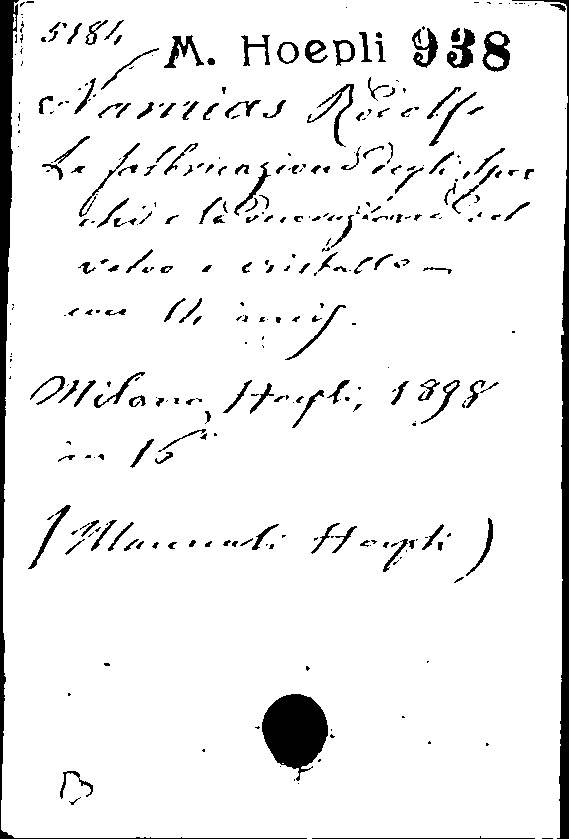 5184
M. Hoepli 938
Namias Rodolfo
La fabbricazione degli spec
chi e la decorazione del
vetro e cristallo —
con 14 incis.
Milano, Hoepli, 1898
in 16°
(Manuali Hoepli)
B